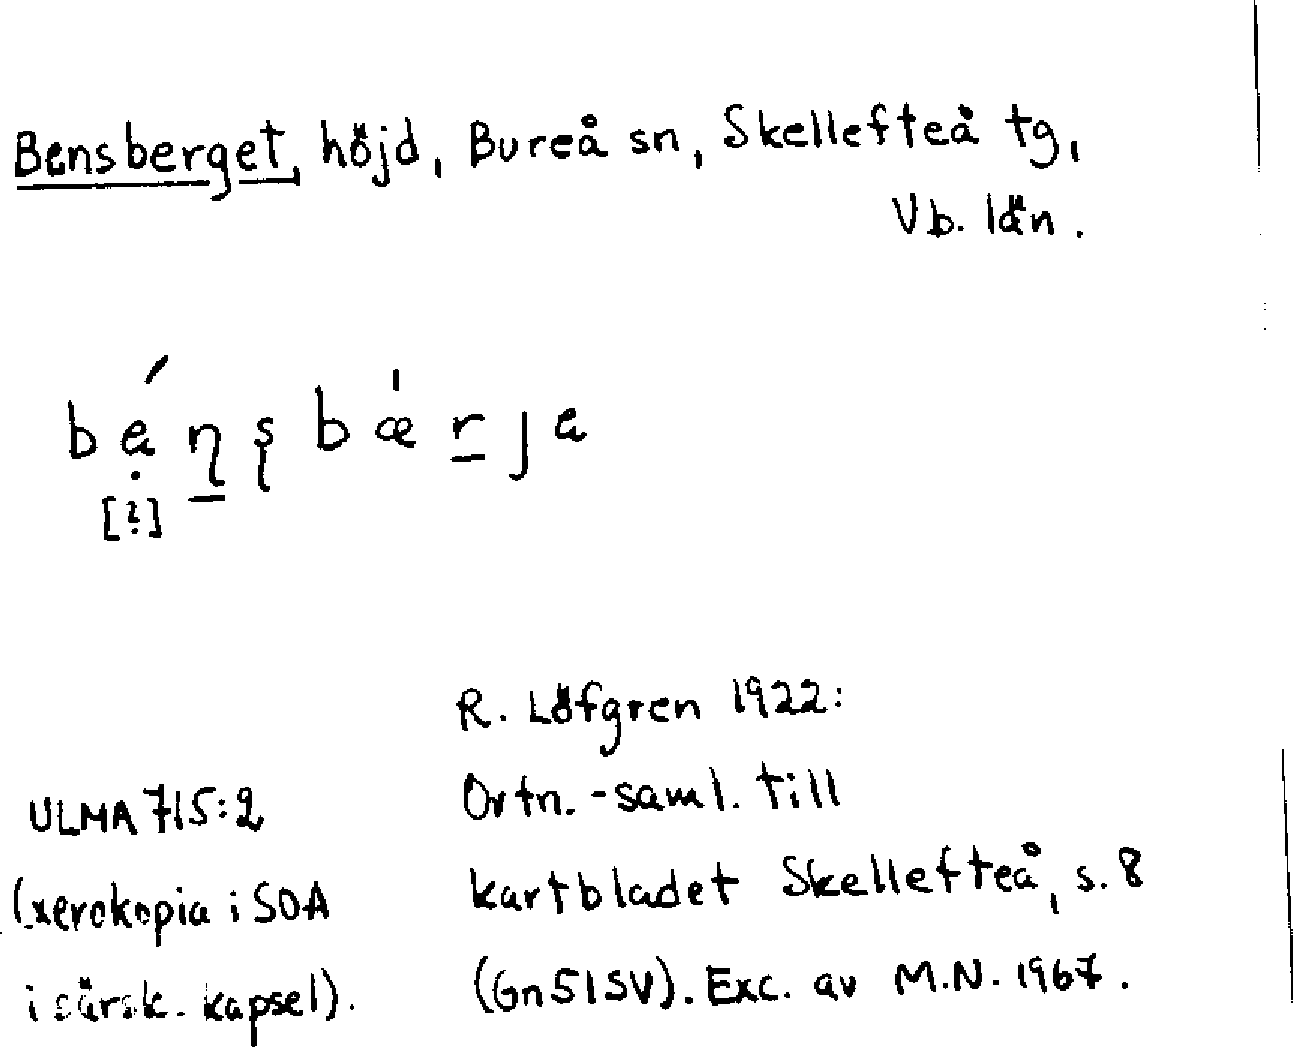 Bensberget, höjd, Bureå sn, Skellefteå tg,
Vb. län.
[?]
R. Löfgren 1922:
Ortn.-saml. till
kartbladet Skellefteå, s. 8
(Gn51SV). Exc. av M.N. 1967.
ULMA 715:2
(xerokopia i SOA
i särsk. kapsel).